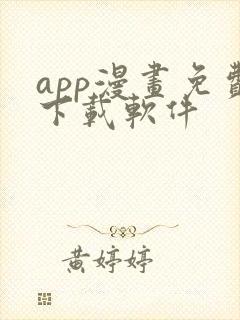 app漫畫免費
下載軟件
黃婷婷